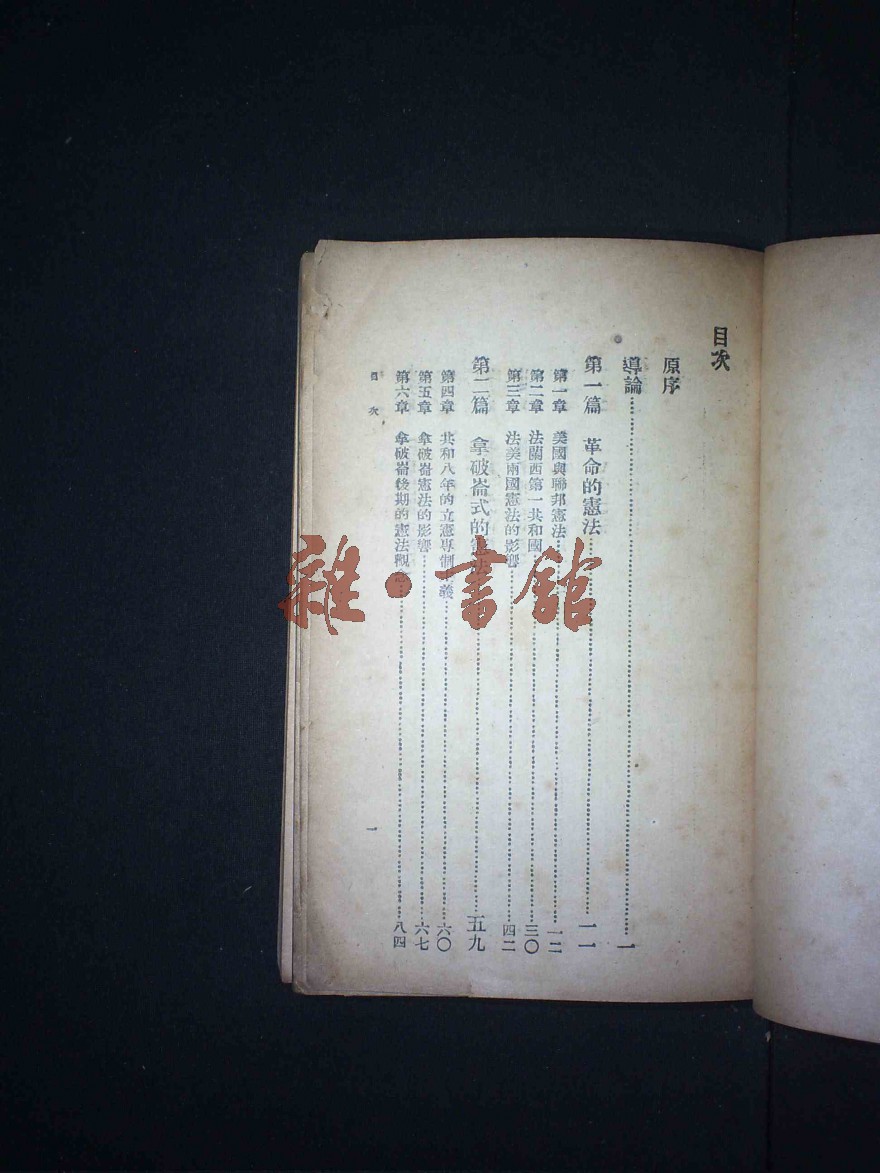 目次
原序
導論一
第一篇 革命的憲法一一
第一章 美國與聯邦憲法一二
第二章 法蘭西第一共和國三〇
第三章 法美兩國憲法的影響四二
第二篇 拿破崙式的憲法五九
第四章 共和八年的立憲專制主義六〇
第五章 拿破崙憲法的影響六七
第六章 拿破崙後期的憲法觀念八四
目次
一
雜·書館